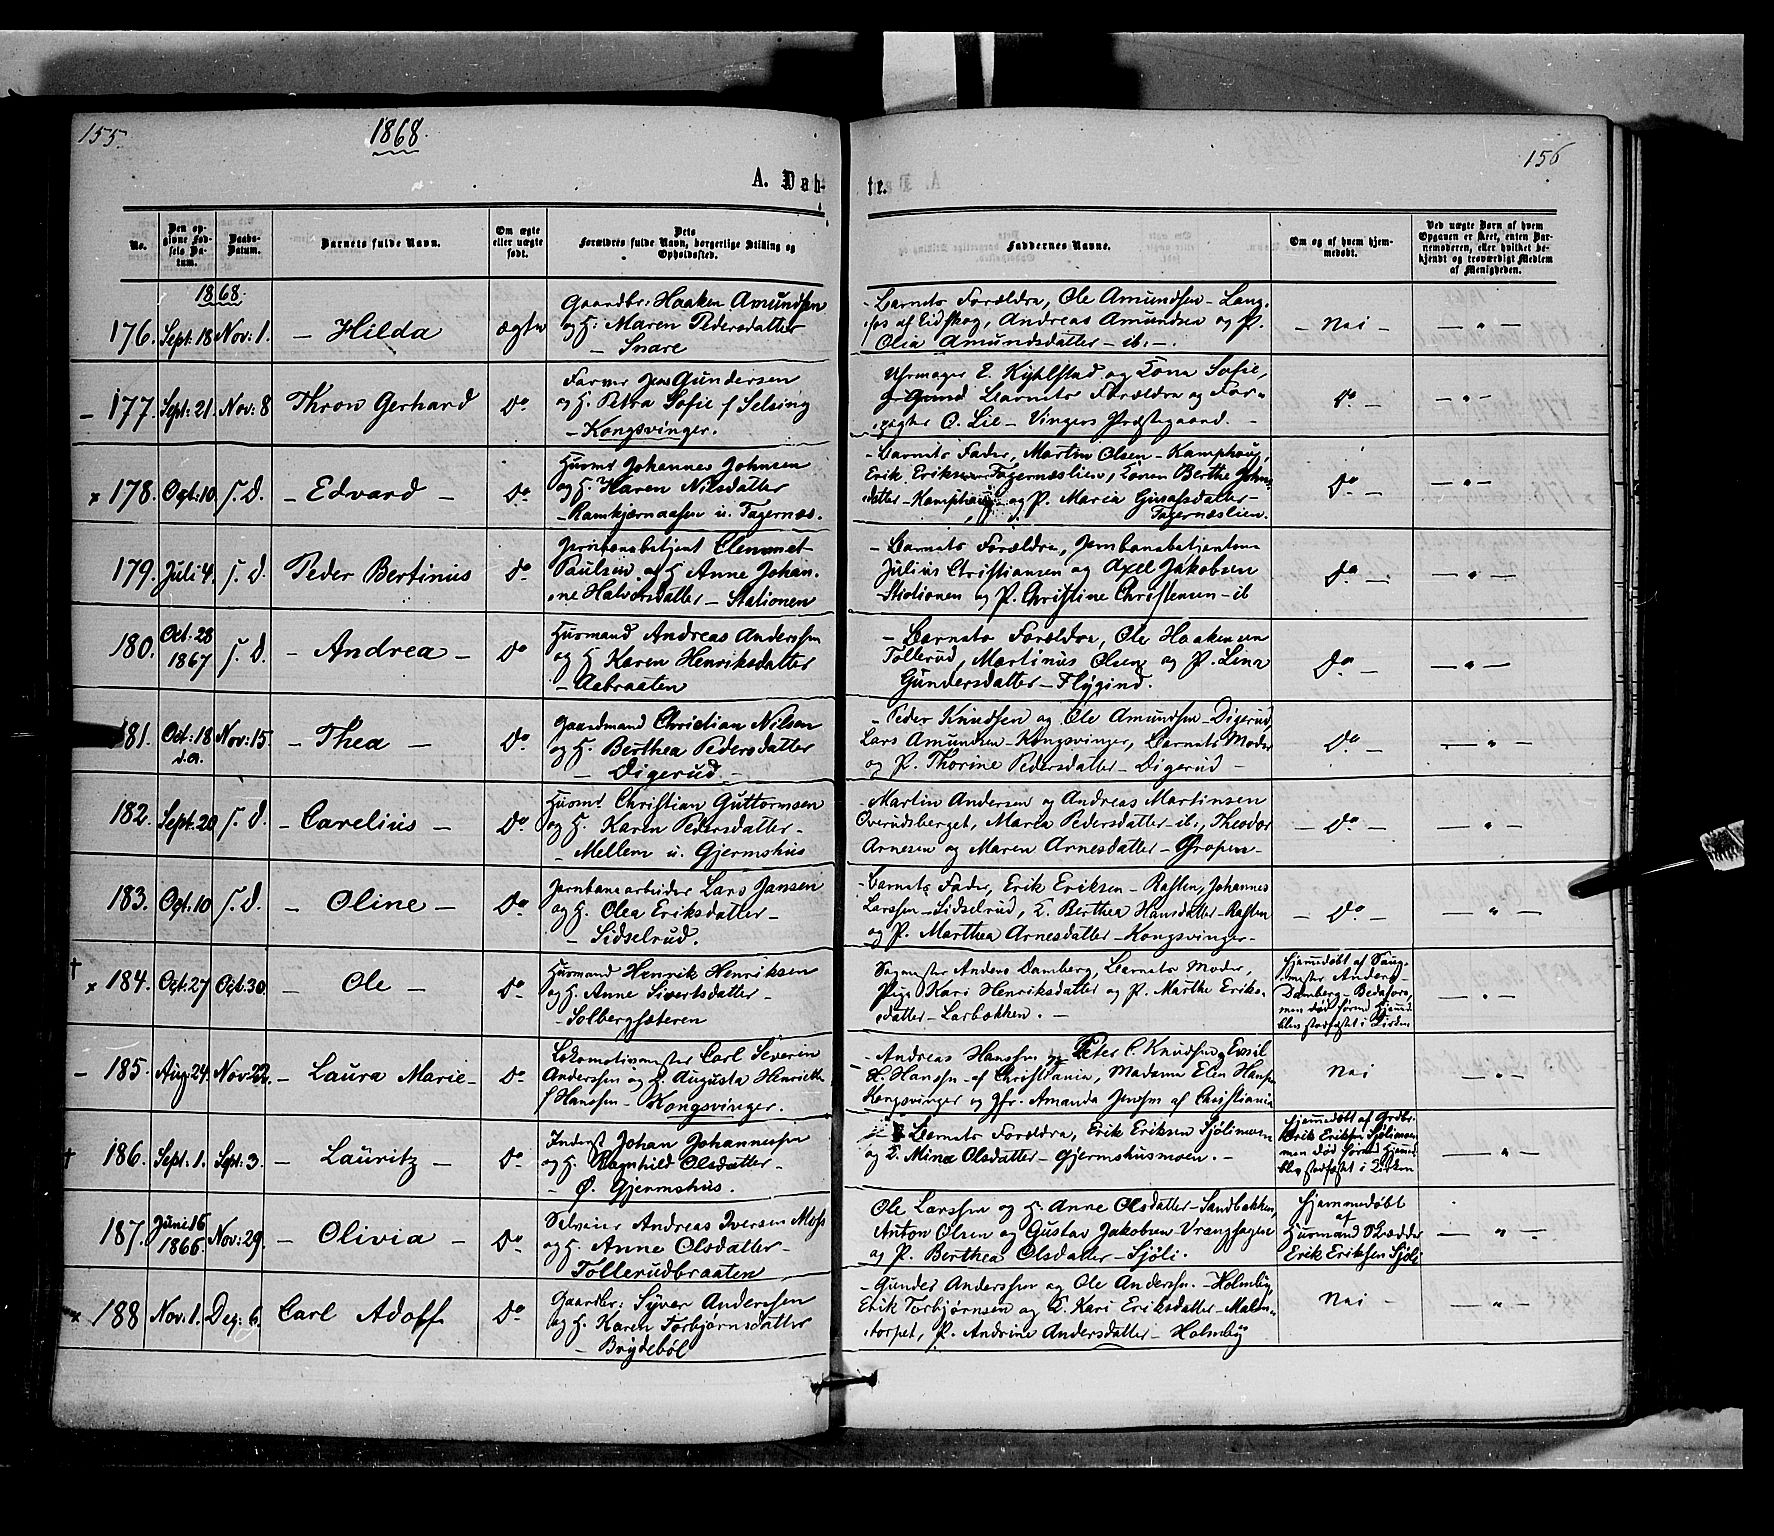 155.
1868.
156
A. Døb-
te.
No.
Den op-
givne Fød-
sels Da-
tum.
Daabs-
Datum.
Barnets fulde Navn.
Om ægte
eller uægte
født.
Dets
Forældres fulde Navn, borgerlige Stilling og
Opholdssted.
Faddernes Navne.
Om og af hvem hjem-
medøbt.
Ved uægte Barn af hvem
Opgaven er skeet, enten Bar-
nemoderen, eller hvilket be-
kjendt og troværdigt Medlem
af Menigheden.
1868.
176. Sept: 18 Nov: 1. - Hilda ægte
Gaardbr: Haaken Amundsen
og H: Maren Pedersdatter
- Snare
- Barnets Forældre, Ole Amundsen - Lang-
fos af Eidskog, Andreas Amundsen og P.
Olia Amundsdatter - ib: -.
- Nei -
- " -
- 177. Sept: 21. Nov: 8 Thron Gerhard Do
Farver Jens Gundersen
og H. Petra Sofie f Selsing
- Kongsvinger.
Uhrmager E. Kyhlstad og Kona Sofie,
Barnets Forældre og For-
pagter O. Lie - Vingers Præstegaard. -
Do -
- " -
x 178. Oct: 10. S. D. - Edvard - Do
Husmd Johannes Johnsen
og H. Karen Nilsdatter
- Ramkjærnaasen u. Tagernæs.
- Barnets Fader, Martin Olsen - Kamphaug,
Erik Eriksen Tagernæslien, Konen Berthe John-
datter - Kamphaug - og P. Maria Gustafsdatter -
Tagernæslien.
Do -
- " -
179. Juli 4. S. D. Peder Bertinus Do
Jernbanebetjent Clemmet
Paulsen og H Anne Johan-
ne Halvorsdatter - Stationen
- Barnets Forældre, Jernbanebetjentene
Julius Christiansen og Axel Jakobsen
Stationen og P. Christine Christensen - ib
Do -
- " -
180. Oct. 28
1867 S. D. - Andrea - Do
Husmand Andreas Anderssen
og H. Karen Henriksdatter
- Aabraaten
- Barnets Forældre, Ole Haakensen
Tollerud, Martinus Olsen og P. Lina
Gundersdatter - Flygind.
Do -
- " -
181. Oct: 18
d.A. Nov: 15. - Thea - Do
Gaardmand Christian Nilsen
og H. Berthea Pedersdatter
- Digerud -
- Peder Knudsen og Ole Amundsen - Digerud,
Lars Amundsen - Kongsvinger, Barnets Moder
og P. Thorine Pedersdatter - Digerud -
Do -
- " -
182. Sept: 20 S. D. - Carelius - Do
Husmd Christian Guttormsen
og H. Karen Pedersdatter -
- Mellem u. Gjermshus
- Martin Andersen og Andreas Martinsen
Overudsberget, Maria Pedersdatter - ib:, Theodor
Arnesen og Maren Arnesdatter - Gropen -
- Do -
- " -
183. Oct: 10 S. D. - Oline - Do
Jernbanearbeider Lars Jansen
og H. Olea Eriksdatter -
- Sidselrud.
- Barnets Fader, Erik Eriksen - Rasten, Johannes
Larssen - Sidselrud, K. Berthea Hansdatter - Rasten
og P. Marthea Arnesdatter - Kongsvinger -
- Do -
- " -
† x 184. Oct: 27 Oct: 30. - Ole - Do
Husmand Henrik Henriksen
og H. Anne Sivertsdatter -
- Solbergsæteren
Sagmester Anders Damberg, Barnets Moder,
Pige Kari Henriksdatter og P. Marthe Eriks-
datter - Larbækken. -
Hjemedøbt af Saug-
mester Anders
Damberg -
men død førend Hjemed
blev stadfæstet i Kirken
- " -
- 185. Aug: 24. Nov: 22. - Laura Marie - Do
Lokomotivmester Carl Severin
Anderssen og H. Augusta Henriette
f Hanssen - Kongsvinger.
- Andreas Hanssen og Peter C. Knudsen,
H. Hanssn - af Christiania, Madame Elen Hansen
Kongsvinger og Jfr. Amanda Jenssen af Christiania
Nei
- " -
† 186. Sept: 1. Sept: 3. - Lauritz - Do
Inderst Johan Johannessen
og H. Ragnhild Olsdatter -
- Ø. Gjermshus.
- Barnets Forældre, Erik Eriksen Sjølimoen
og K. Mina Olsdatter - Gjermshusmoen. -
Hjemedøbt af Grdbr:
Erik Eriksen Sjølimoen
men død førend Hjemed
blev stadfæstet i Kirken
- " -
187. Juni 16
1866. Nov: 29. - Olivia - Do
Selveier Andreas Iversen Moss
og H. Anne Olsdatter -
- Tollerudbraaten
Ole Larssen og H. Anne Olsdatter - Sandbakken,
Anton Olsen og Gustav Jakobsen Vranghagen
og P. Berthea Olsdatter - Sjøli.
Hjemmedøbt
af
Husmand
Erik Eriksen Sjøli
- " -
x 188 Nov: 1. Dec: 6. Carl Adolf Do
Gaardbr: Syver Anderssen
og H. Karen Torbjørnsdatter
- Brydebøl
- Gunder Anderssen og Ole Anderssn. - Holmby,
Erik Torbjørnsen og K. Kari Eriksdatter - Malm-
torpet, P. Andrine Andersdatter - Holmby
Nei -
- " -